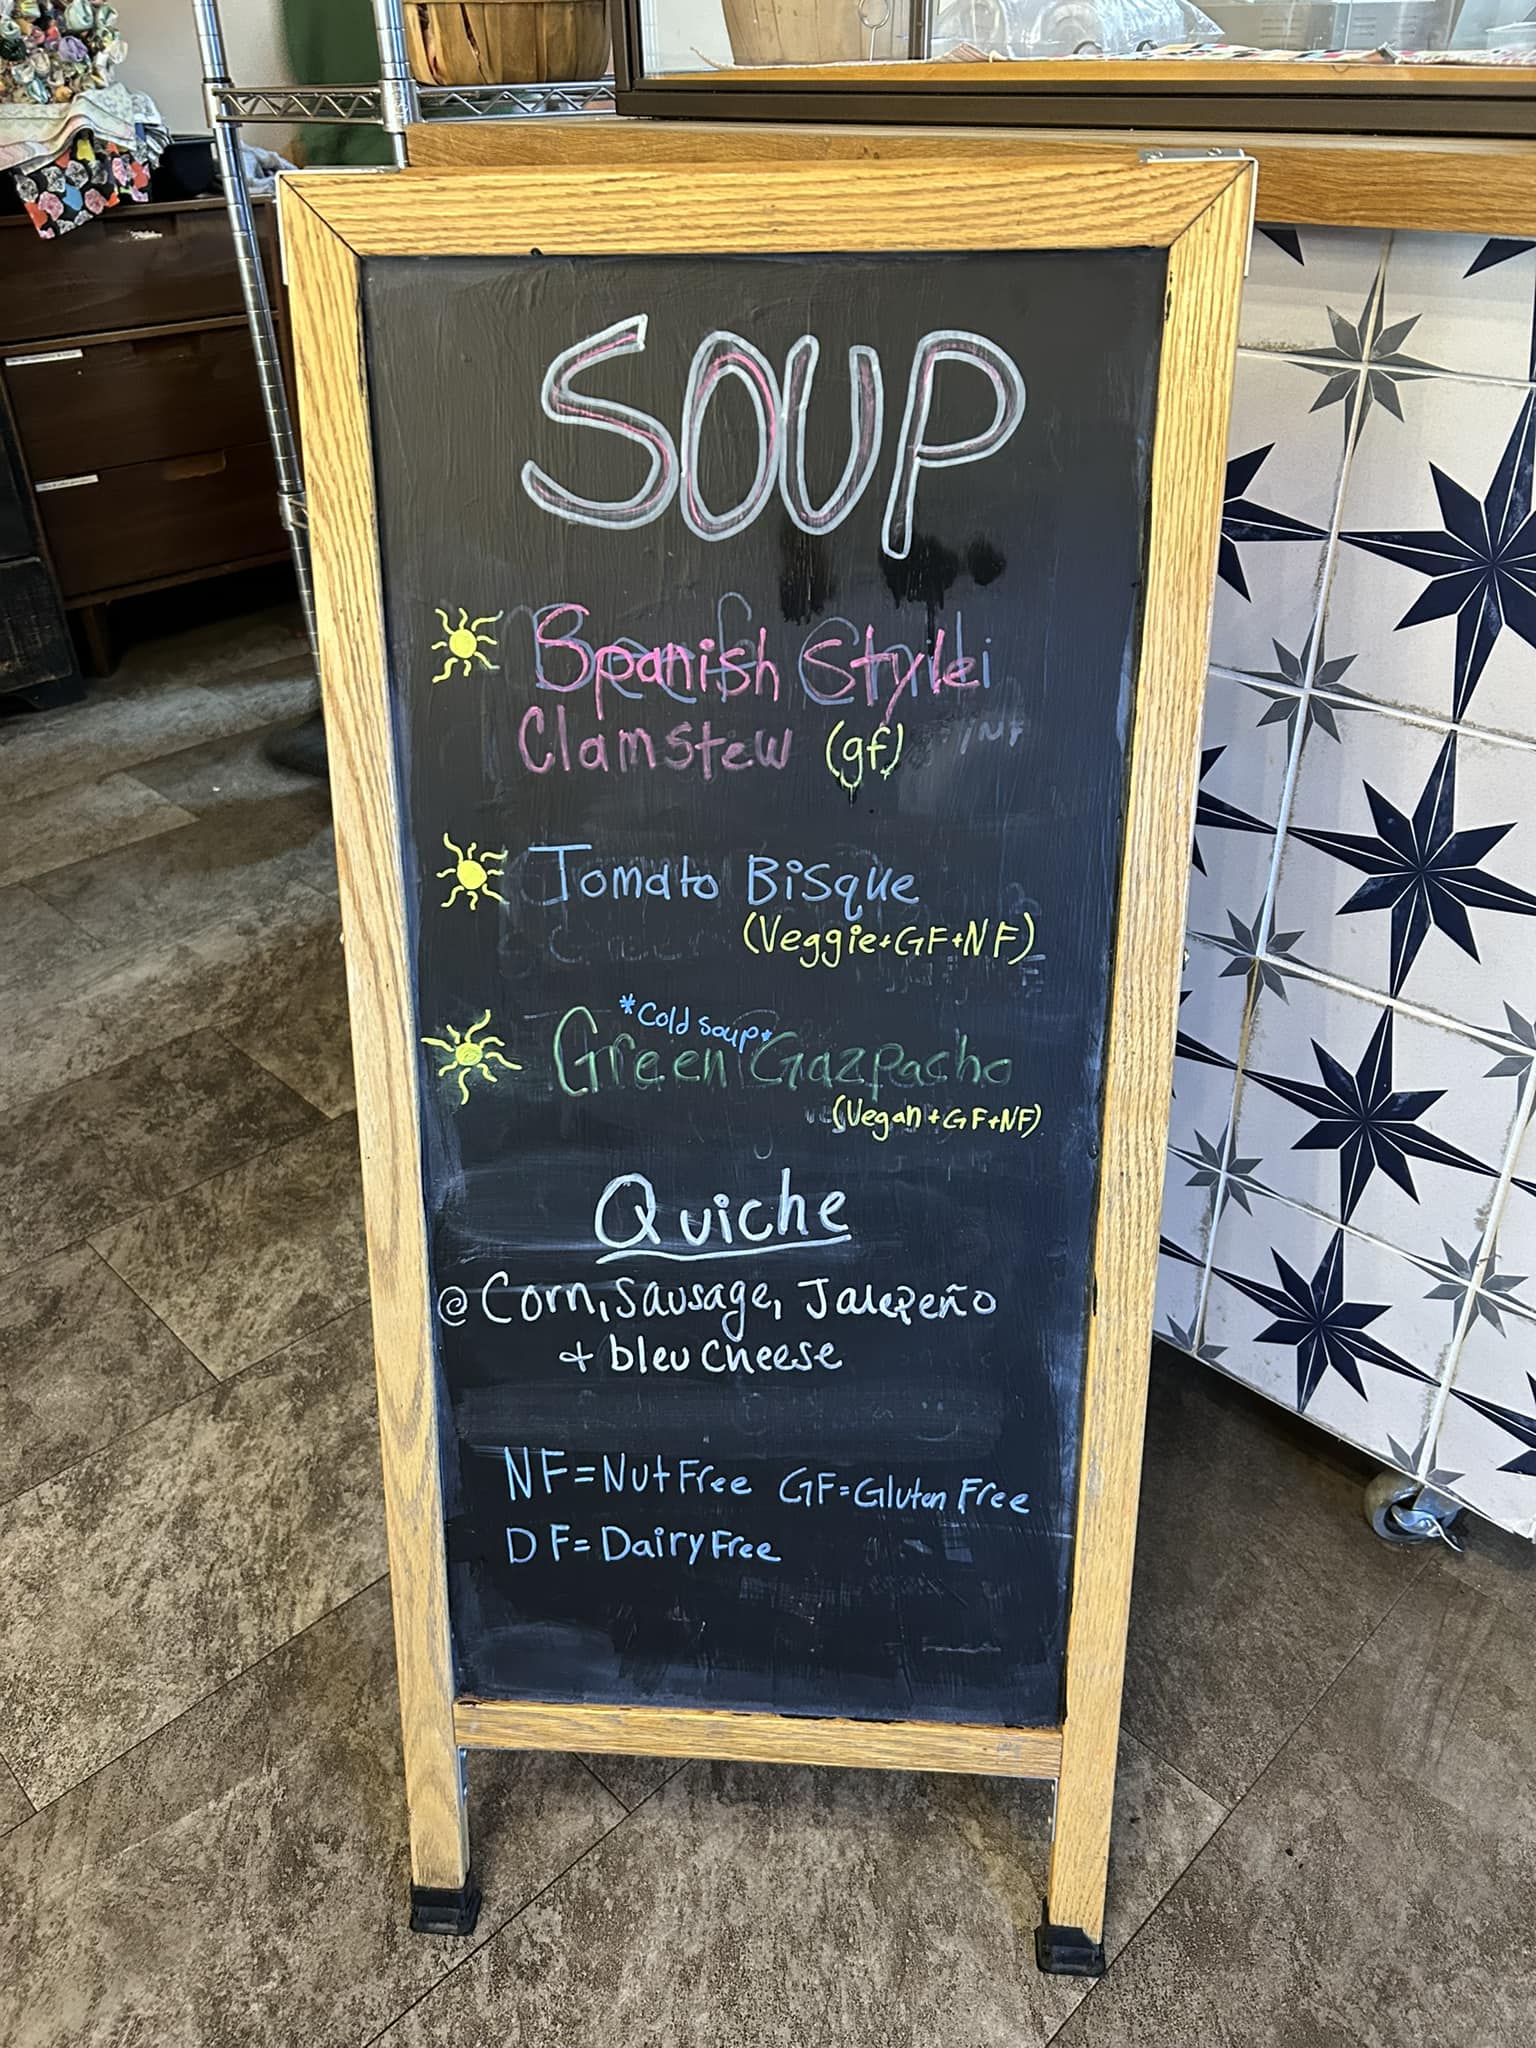 SOUP
Spanish Style
Clam stew (gf)
Tomato Bisque
(Veggie+GF+NF)
*Cold soup*
Green Gazpacho
(Vegan+GF+NF)
Quiche
@ Corn, Sausage, Jalepeño
+ bleu cheese
NF=Nut Free GF=Gluten Free
DF=Dairy Free